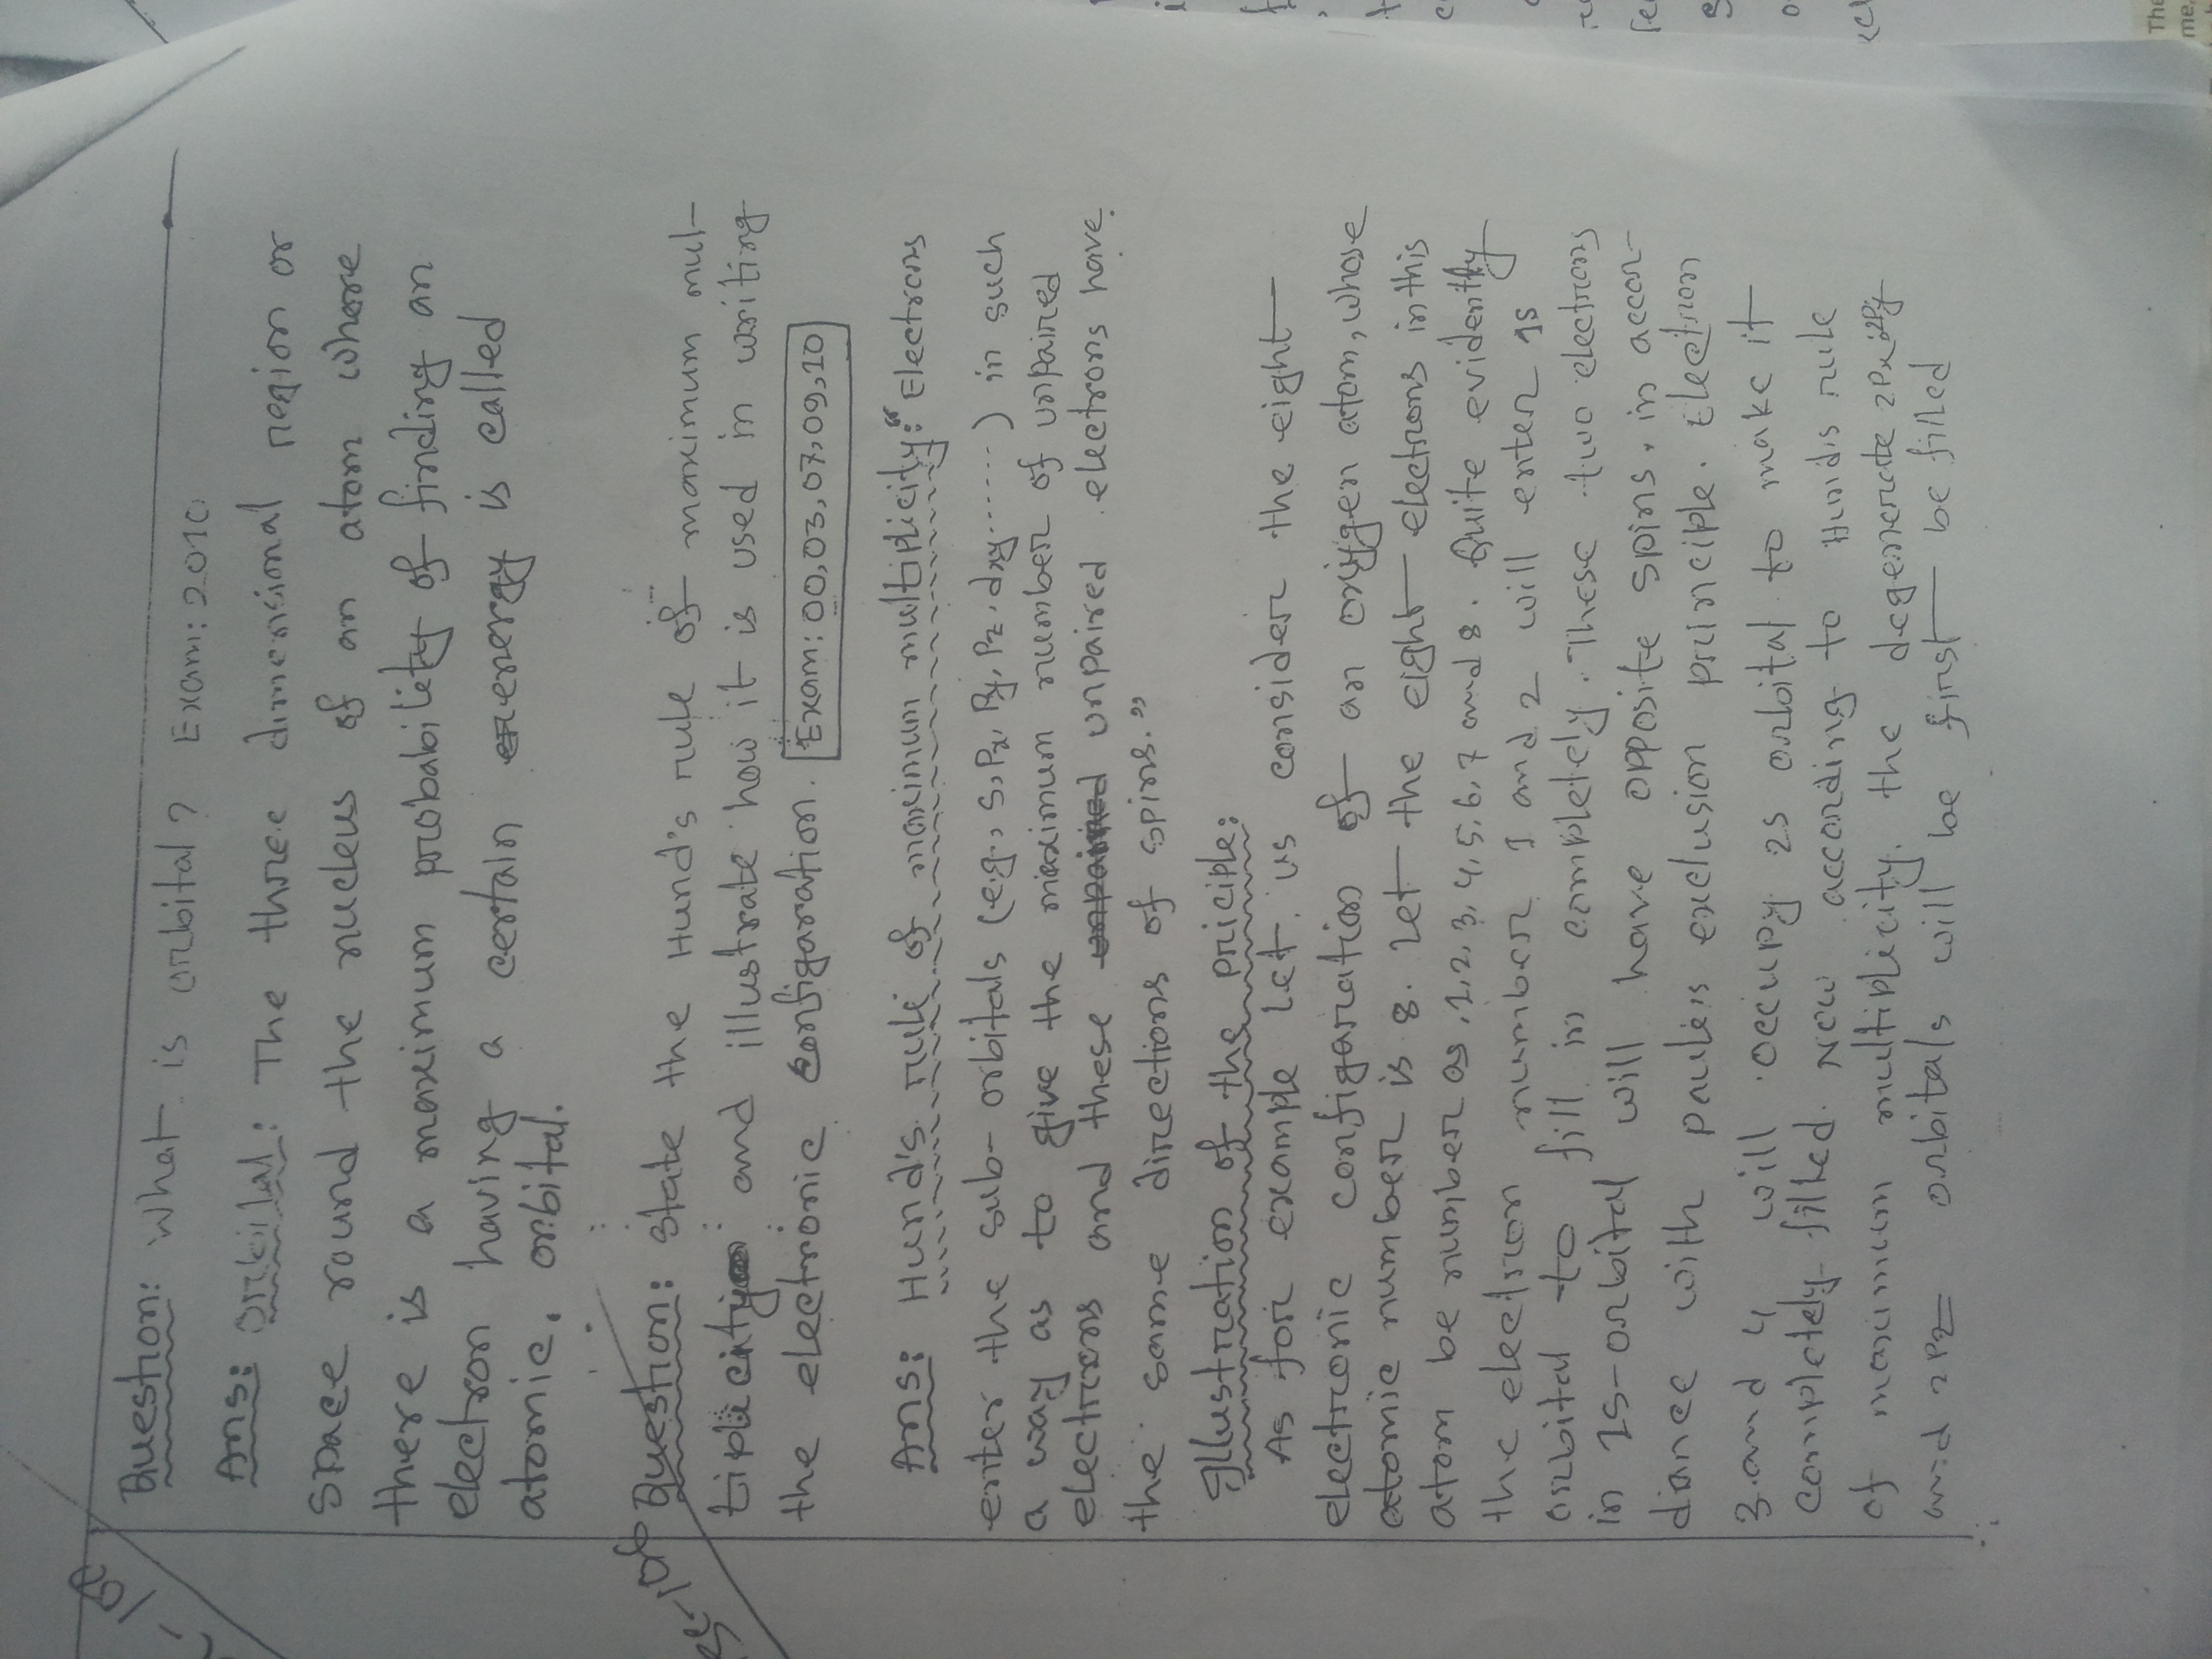 Question: What is orbital? Exam: 2010
Ans: Orbital: The three dimensional region or
space round the nucleus of an atom where
there is a maximum probability of finding an
electron having a certain energy is called
atomic. orbital.
Question: State the Hund's rule of maximum mul-
tiplicity and illustrate how it is used in writing
the electronic configaration. Exam: 00,03,07,09,10
Ans: Hund's rule of maximum multiplicity: "Electrons
enter the sub-orbitals (e.g., s, Px, Py, Pz, dxy......) in such
a way as to give the maximum number of unpaired
electrons and these unpaired unpaired electrons have
the same directions of spins."
Illustration of the priciple:
As for example let us consider the eight
electronic configaration of an oxygen atom, whose
atomic number is 8. Let the eight electrons in this
atom be number as, 1, 2, 3, 4, 5, 6, 7 and 8. Quite evidently
the electron number 1 and 2 will enter 1s
orbital to fill in completely. These two electrons
in 1s-orbital will have opposite spins, in accor-
diance with Paulis exclusion principle. Electron
3 and 4 will occupy 2s orbital to make it
completely filled. Now according to Hunds rule
of maximum multiplicity. the degenerate 2Px, 2Py
and 2Pz orbitals will be first be filled
The
me,